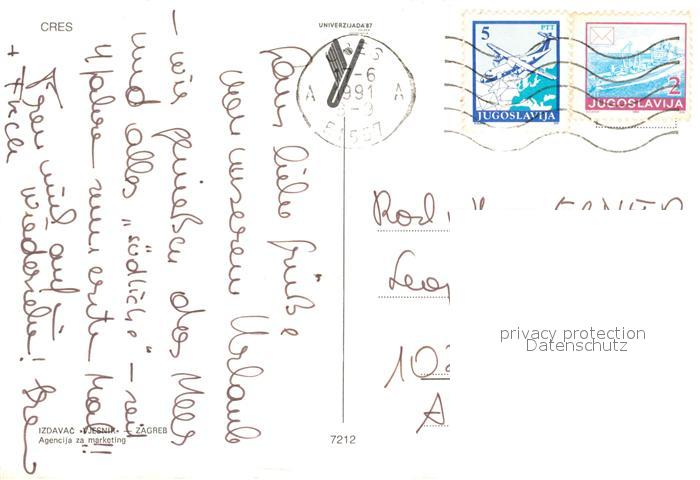 CRES
UNIVERZIJADA'87
CRES
-6
1991
A A
51557
5 PTT
JUGOSLAVIJA
2
JUGOSLAVIJA
Ganz liebe Grüße
von unserem Urlaub
- wir genießen das Meer
und alles „südliche" - seit
4 Jahren zum ersten Mal!!
Freu mich auf
wiedersehn!
+
Rod
Leo
10
A
privacy protection
Datenschutz
IZDAVAČ «VJESNIK» — ZAGREB
Agencija za marketing
7212